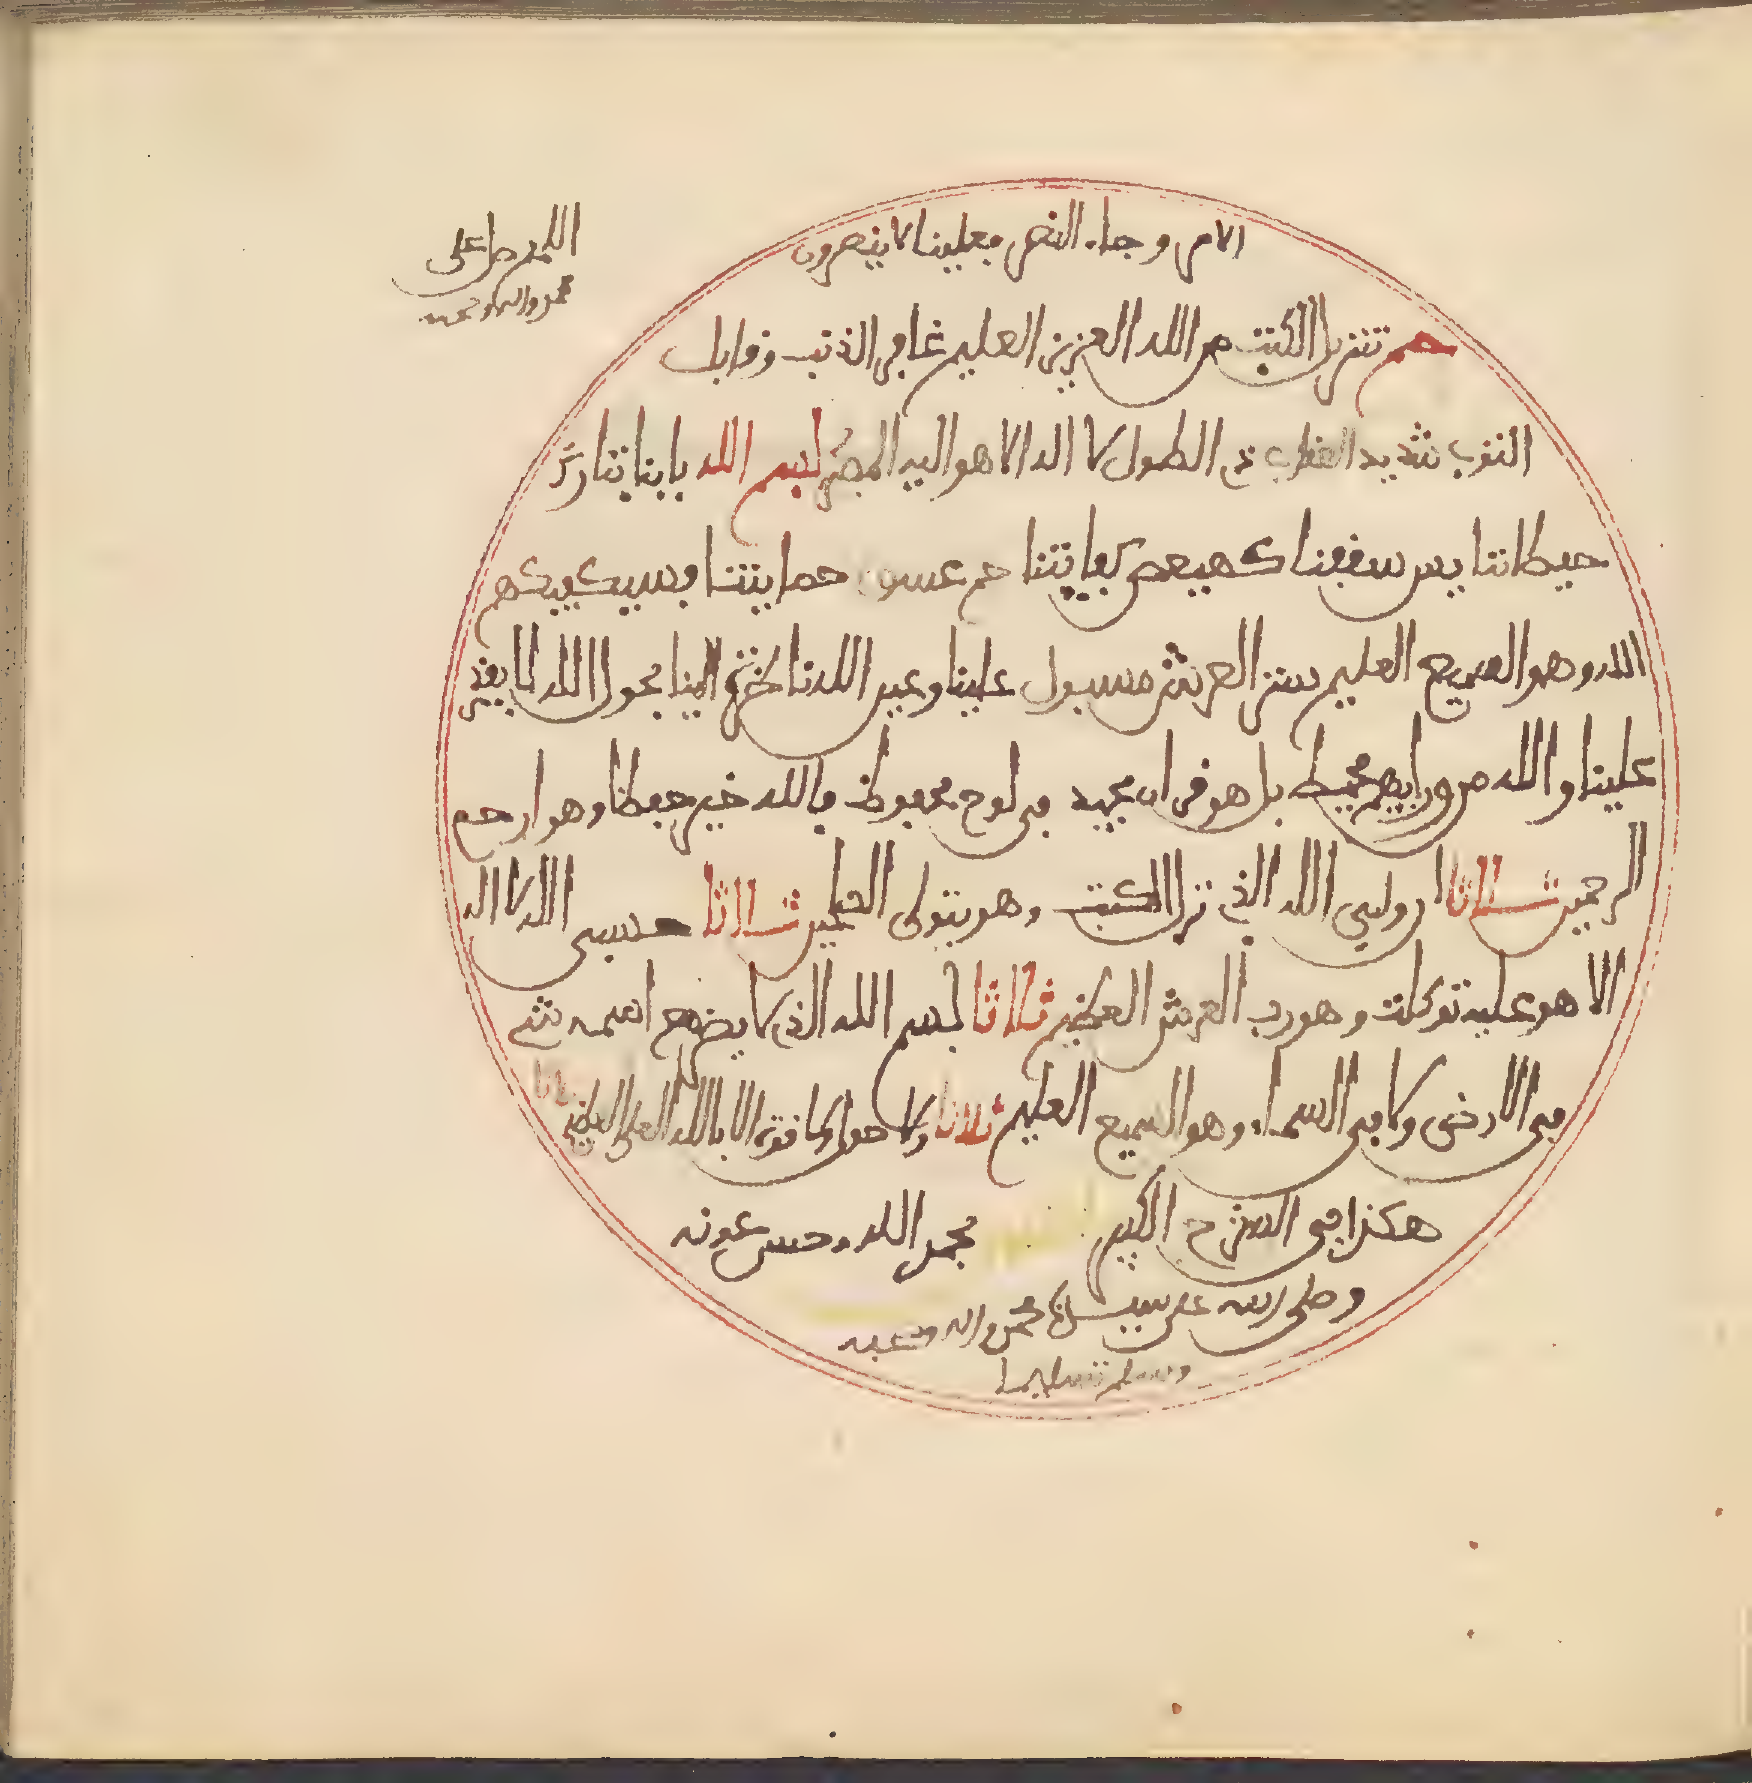 الامر وجاء النصر فعلينا لا ينصرون
حم تنزيل الكتب من الله العزيز العليم غافر الذنب وقابل
التوب شديد العقاب ذي الطول لا اله الا هو اليه المصير بسم الله بابنا تبارك
حيطاننا يس سقفنا كهيعص كفايتنا حم عسق حمايتنا فسيكفيكهم
الله وهو السميع العليم ستر العرش مسبول علينا وعين الله ناظرة الينا بحول الله لا يقدر
علينا والله من ورايهم محيط بل هو قران مجيد في لوح محفوظ فالله خير حفظا وهو ارحم
الرحمين ثلاثا ان وليي الله الذي نزل الكتب وهو يتولى الصلحين ثلاثا حسبي الله لا اله
الا هو عليه توكلت وهو رب العرش العظيم ثلاثا بسم الله الذي لا يضر مع اسمه شيء
في الارض ولا في السماء وهو السميع العليم ثلاثا ولا حول ولا قوة الا بالله العلي العظيم ثلاثا
هكذا في الشرح الكبير بحمد الله وحسن عونه
وصلى الله على سيدنا محمد واله وصحبه
وسلم تسليما
اللهم صل على
محمد واله وصحبه